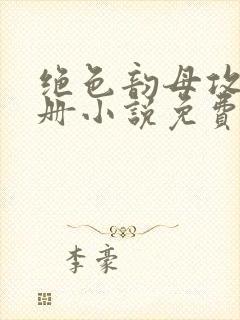 绝色韵母攻
册小说免費
李豪